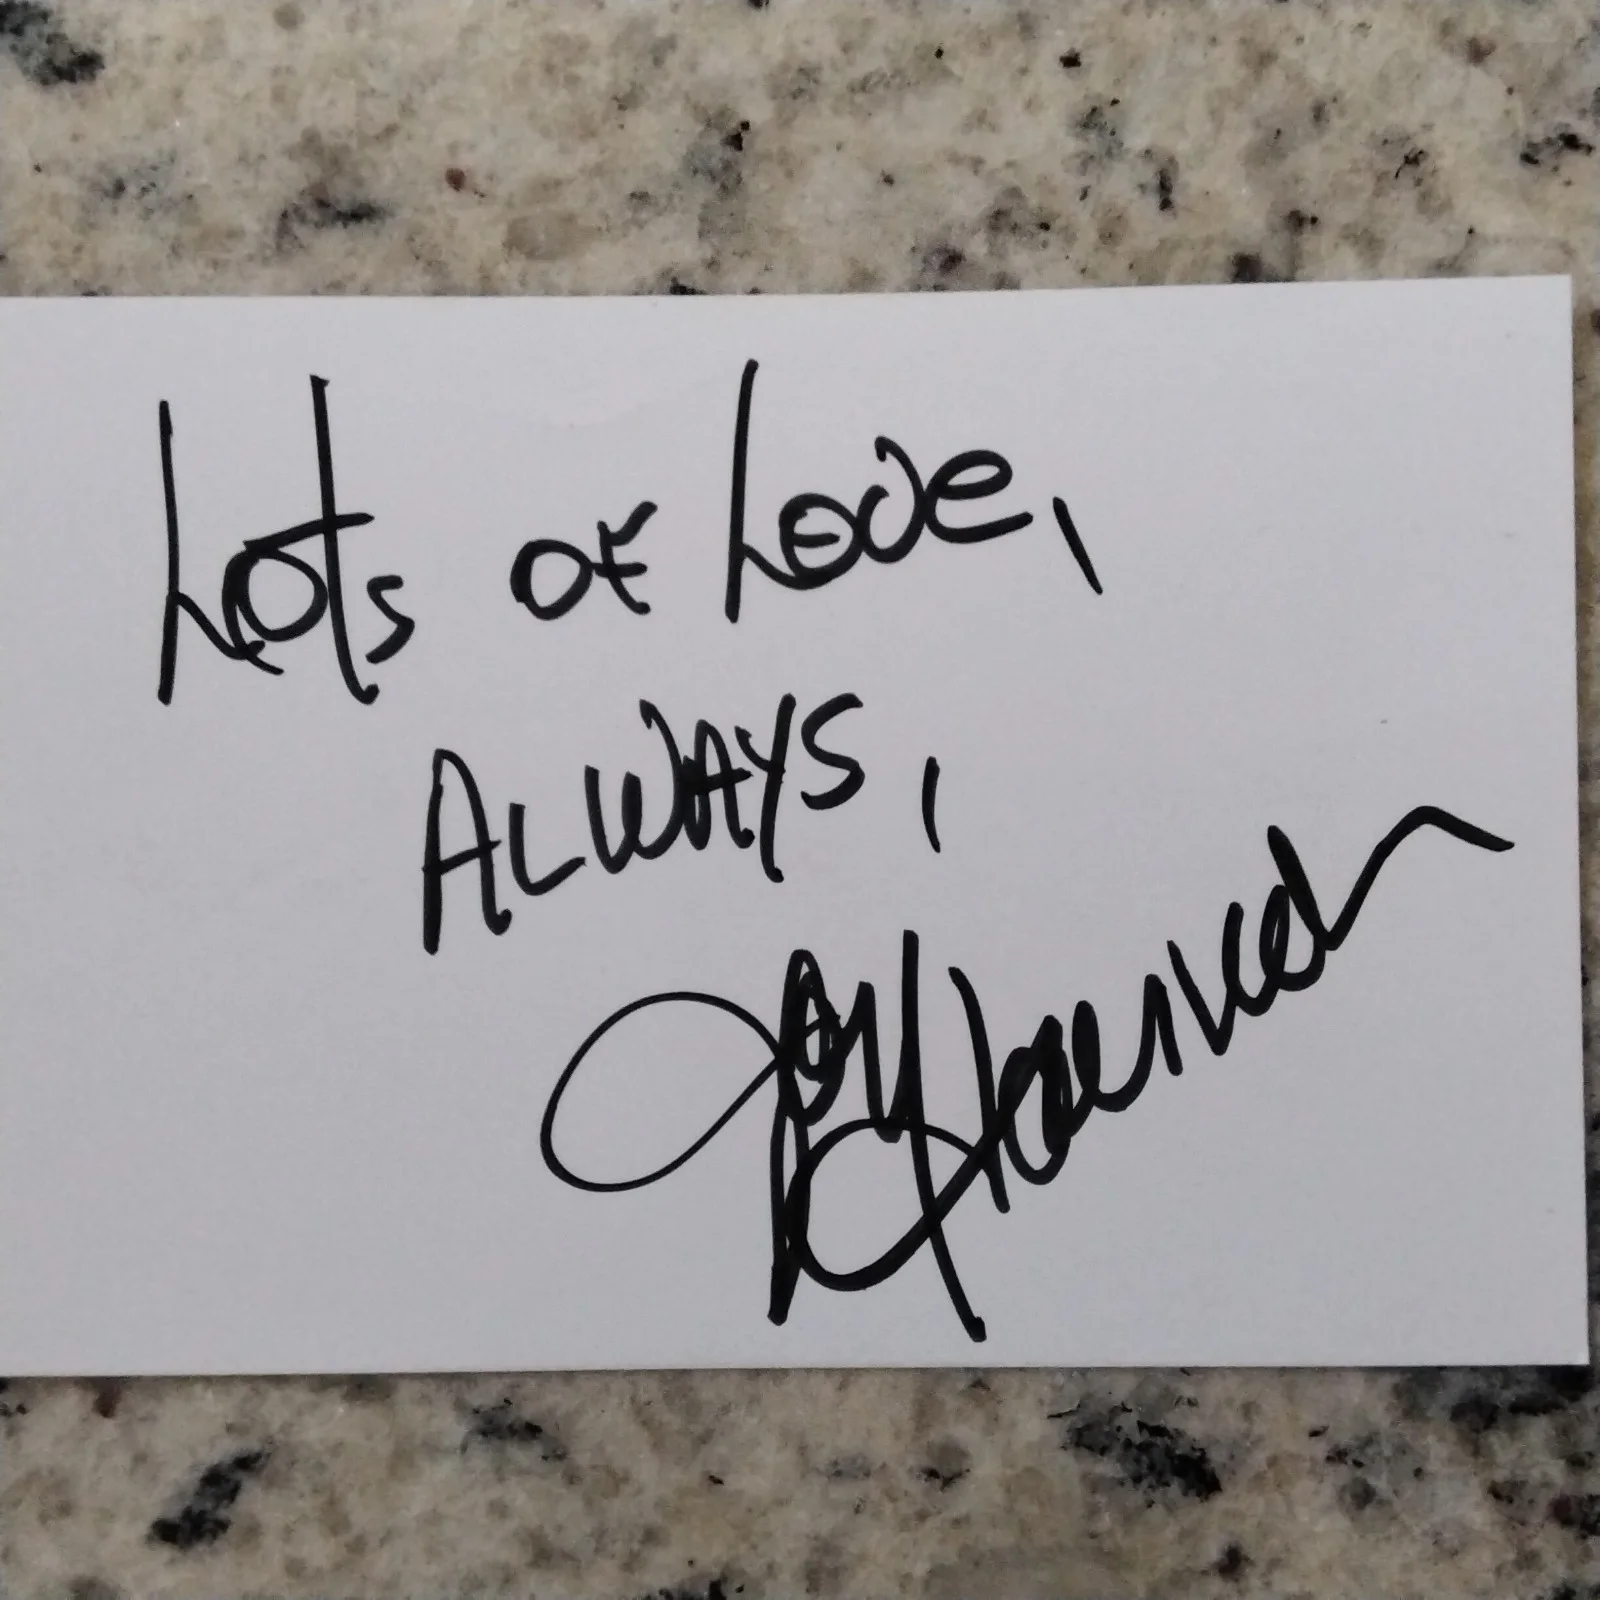 Lots of Love,
ALWAYS,
Joy